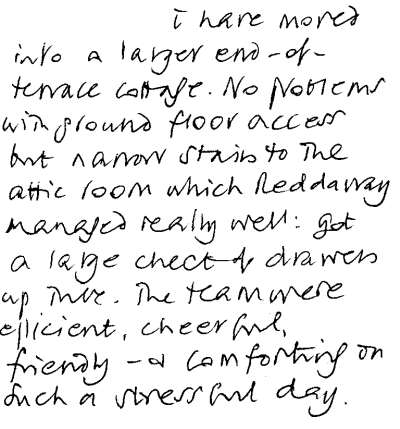 i have moved
into a larger end-of-
terrace cottage. No problems
with ground floor access
but narrow stairs to the
attic room which Reddaway
managed really well: got
a large chest of drawers
up there. The team were
efficient, cheerful,
friendly - & comforting on
such a stressful day.